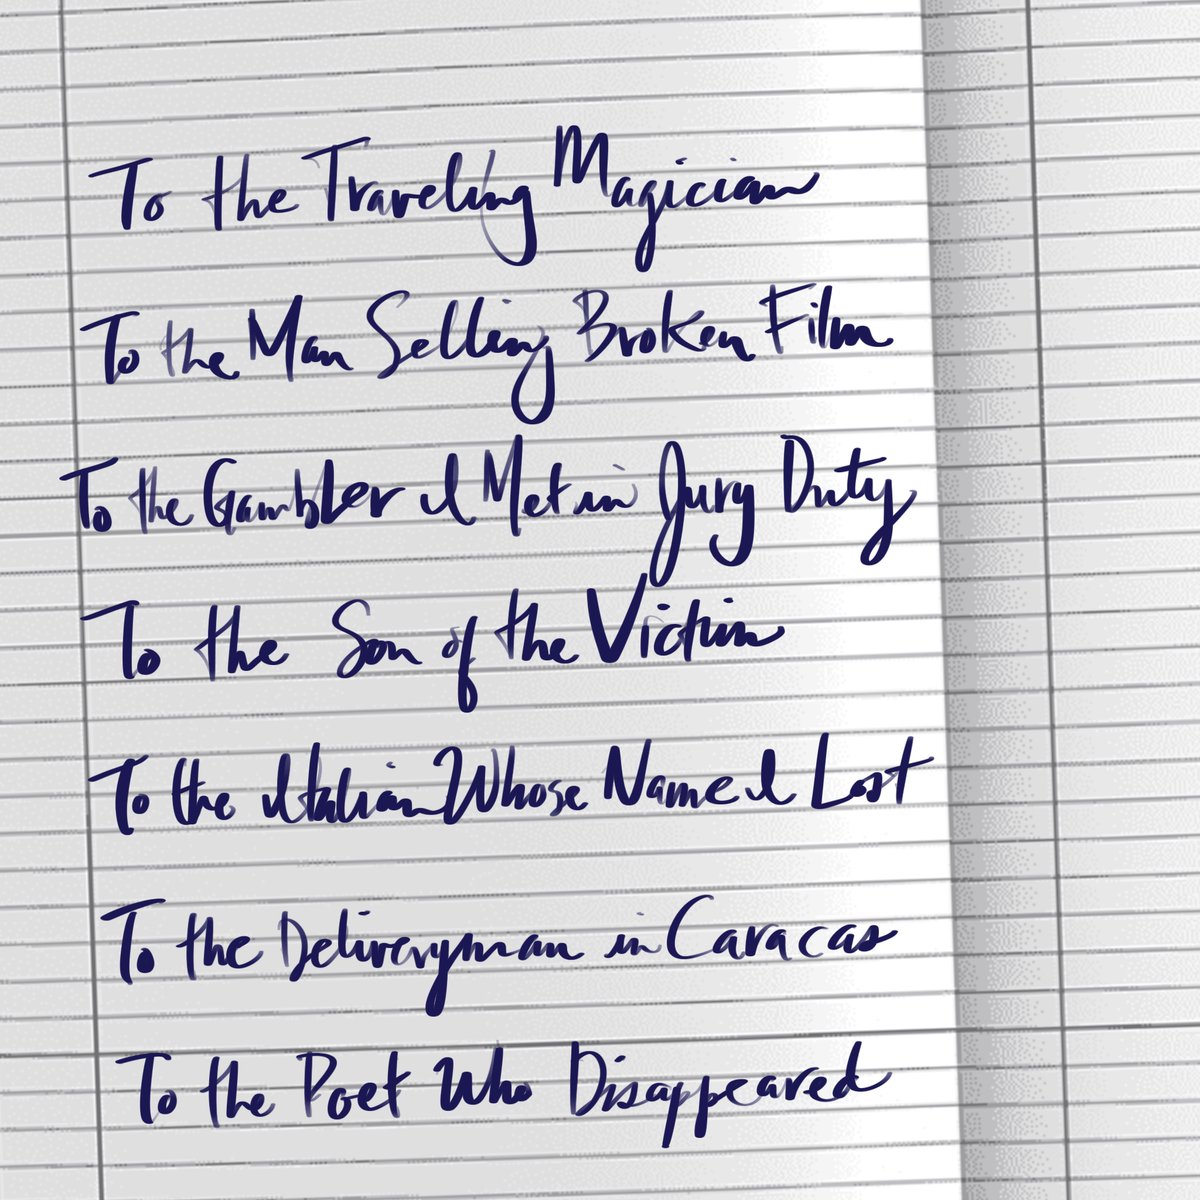 To the Traveling Magician
To the Man Selling Broken Film
To the Gambler I Met in Jury Duty
To the Son of the Victim
To the Italian Whose Name I Lost
To the Deliveryman in Caracas
To the Poet Who Disappeared